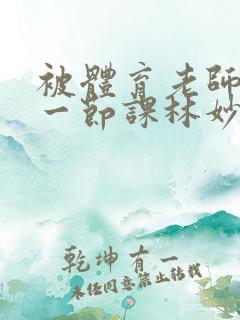 被體育老師
一節課林妙
乾坤有一
未經同意禁止轉載